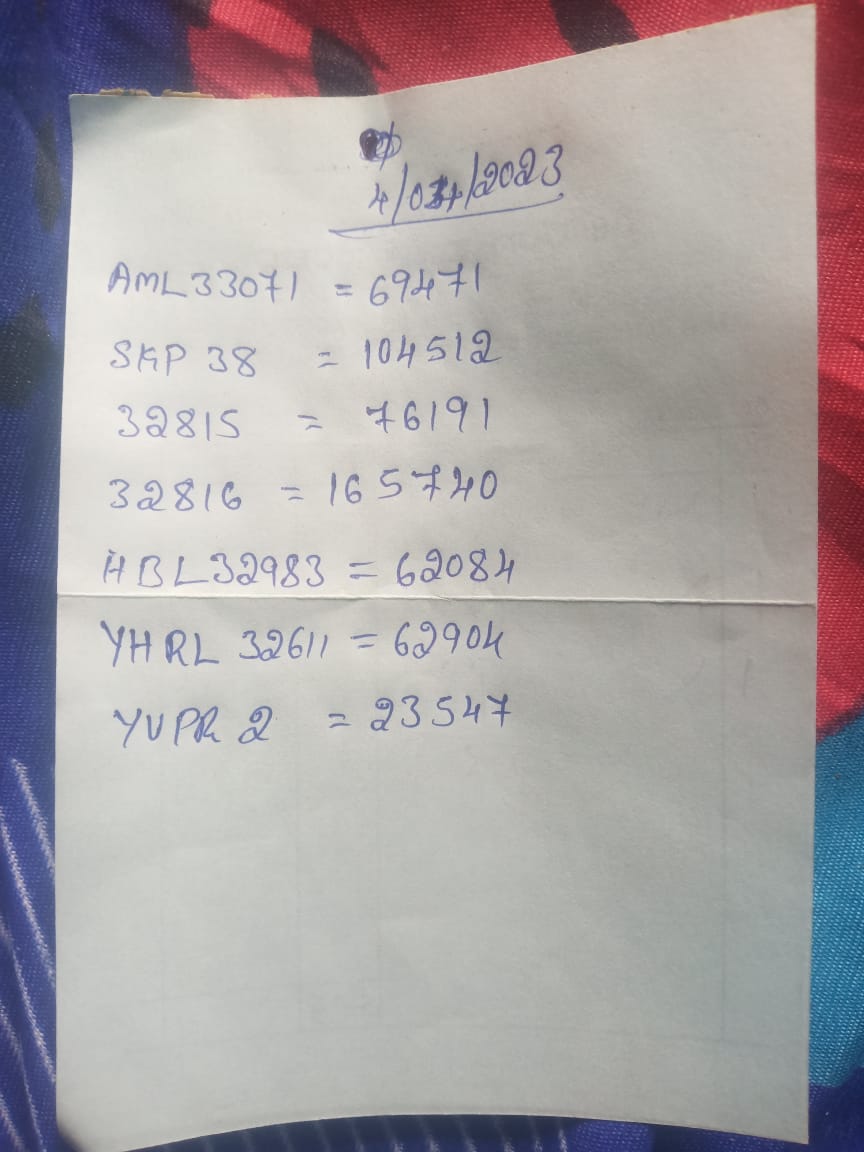 4/04/2023
AML33071 = 69471
SKP 38 = 104512
32815 = 76191
32816 = 165740
HBL32983 = 62084
YHRL 32611 = 62904
YUPR 2 = 23547